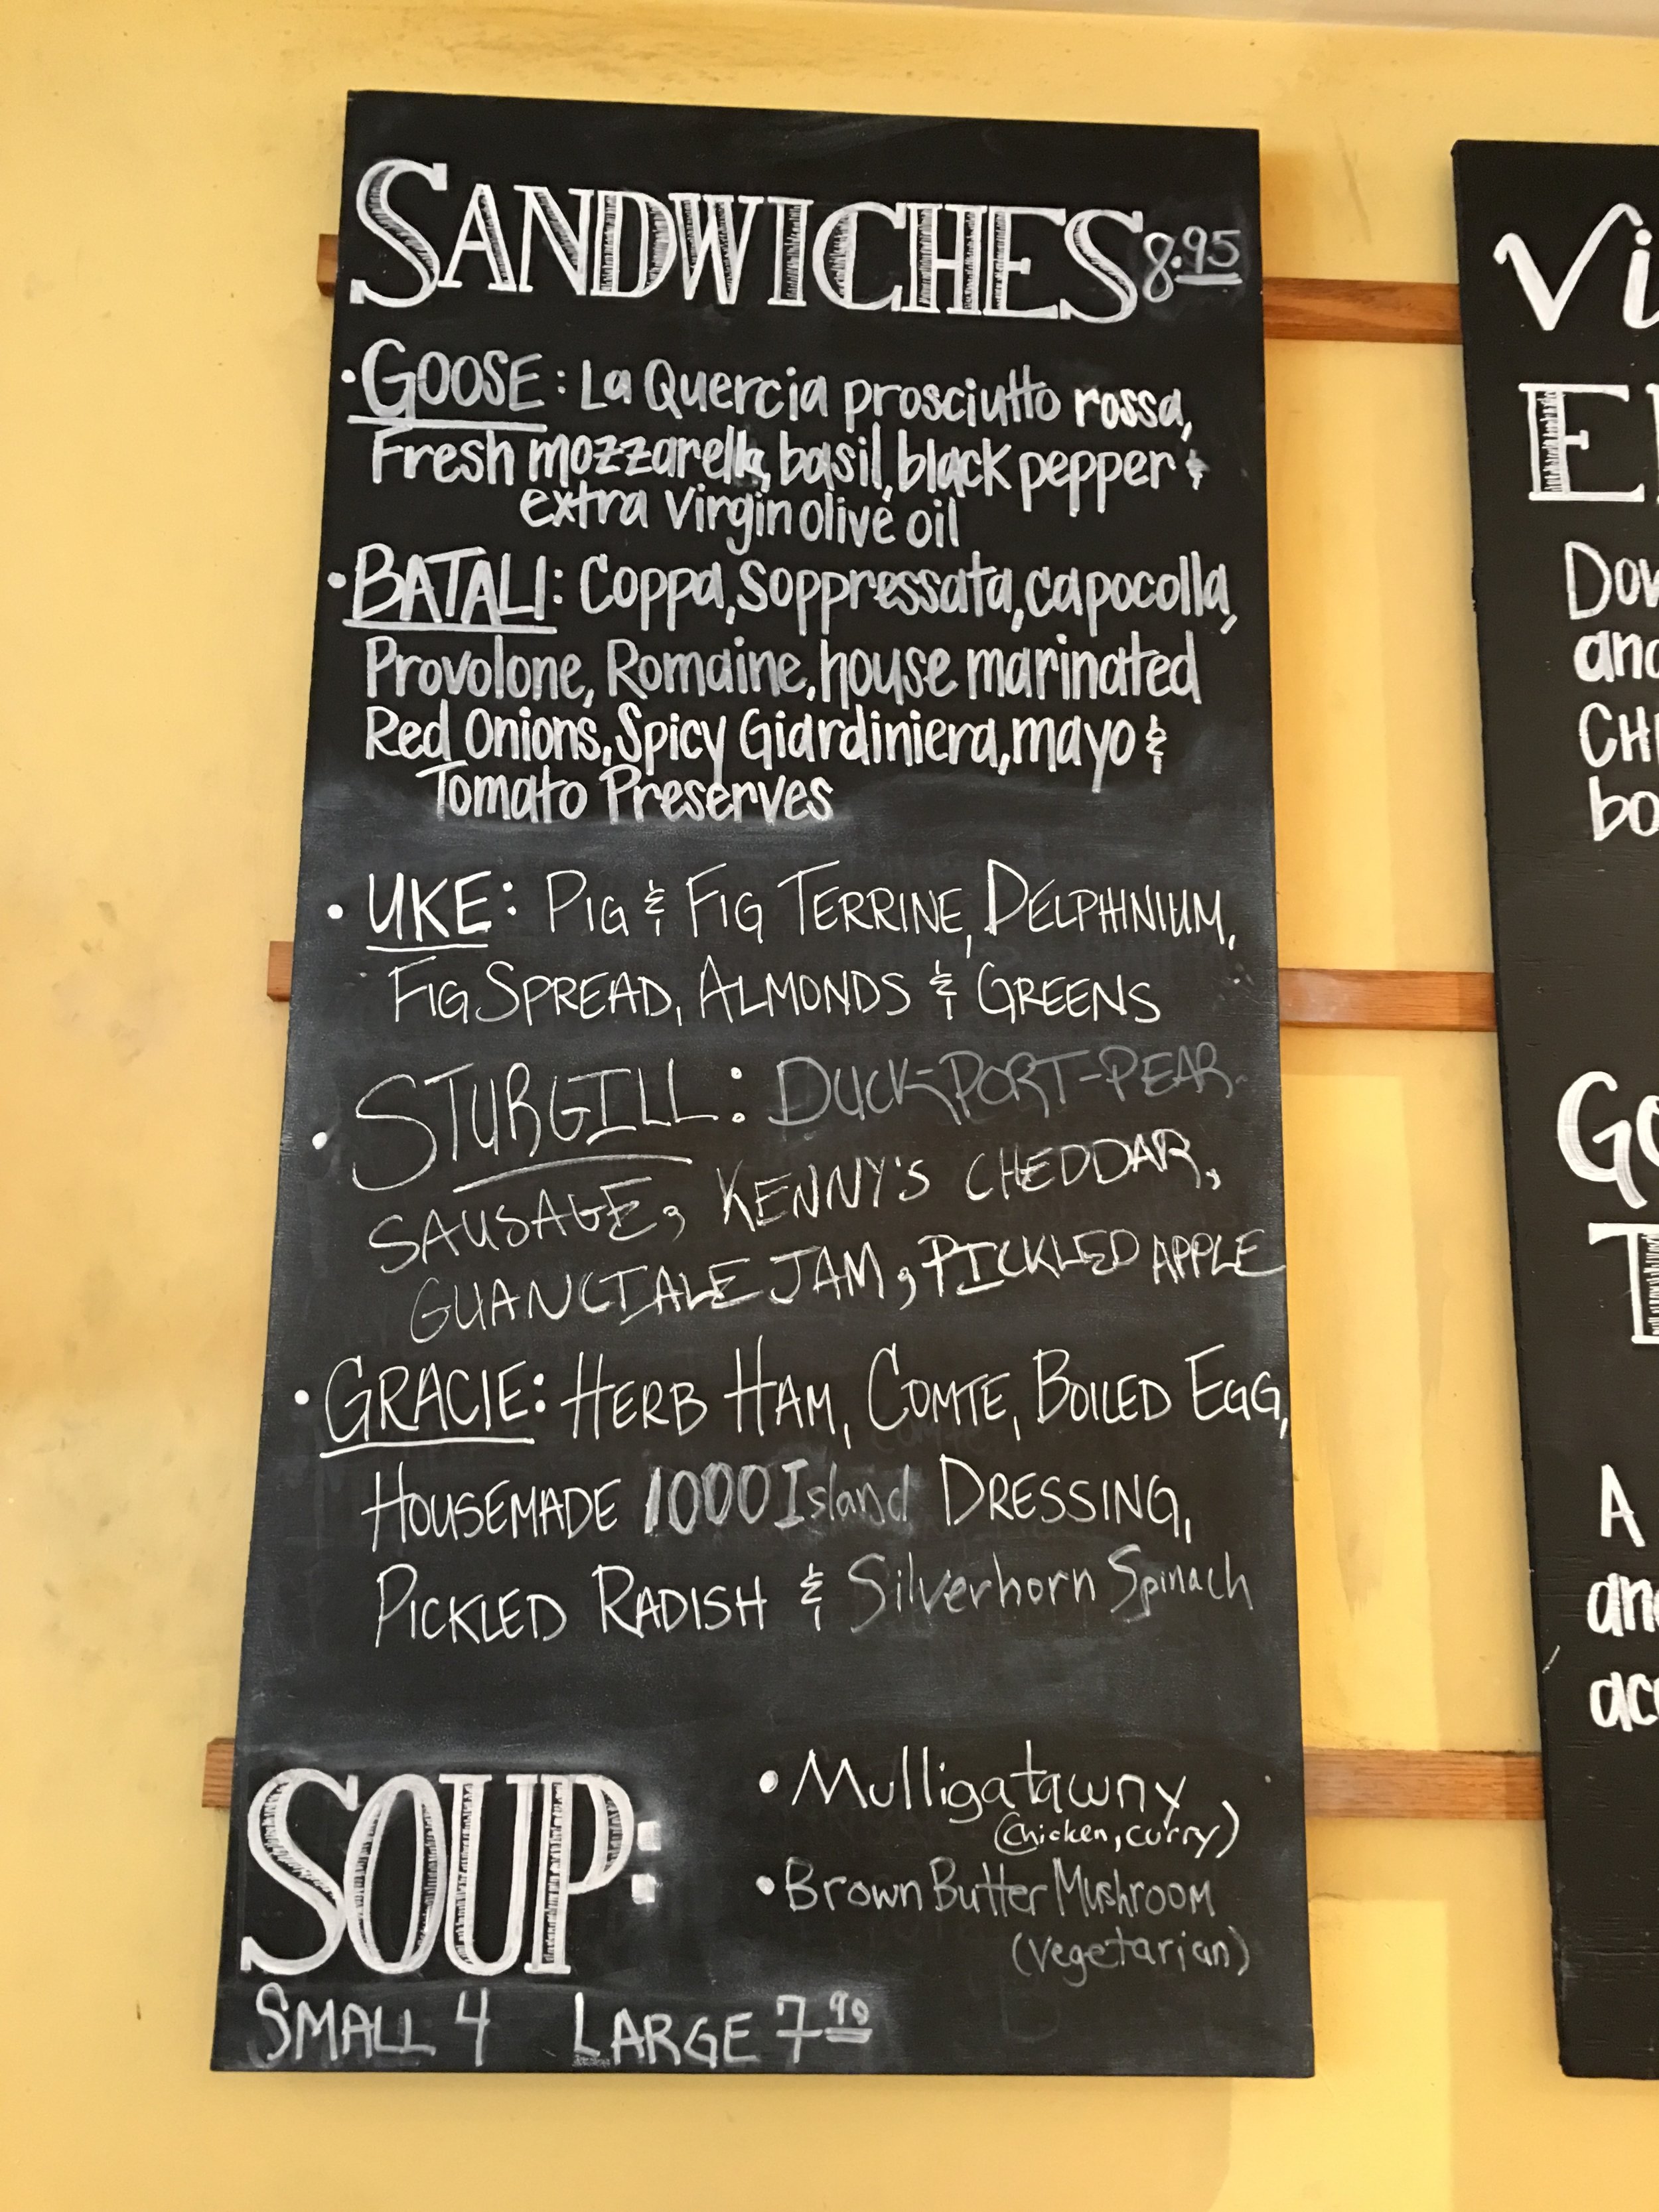 SANDWICHES 8.95
• GOOSE: La Quercia prosciutto rossa,
Fresh mozzarella, basil, black pepper &
extra virgin olive oil
• BATALI: Coppa, Soppressata, capocolla,
Provolone, Romaine, house marinated
Red Onions, Spicy Giardiniera, mayo &
Tomato Preserves
• UKE: PIG & FIG TERRINE, DELPHINIUM,
FIG SPREAD, ALMONDS & GREENS
• STURGILL: DUCK-PORT-PEAR
SAUSAGE, KENNY'S CHEDDAR,
GUANCIALE JAM, PICKLED APPLE
• GRACIE: HERB HAM, COMTE, BOILED EGG,
HOUSEMADE 1000 Island DRESSING,
PICKLED RADISH & Silverhorn Spinach
SOUP:
• Mulligatawny
(Chicken, curry)
• Brown Butter Mushroom
(vegetarian)
SMALL 4 LARGE 7.90
Vi
E
Dow
and
CHI
bo
Go
T
A
and
acc